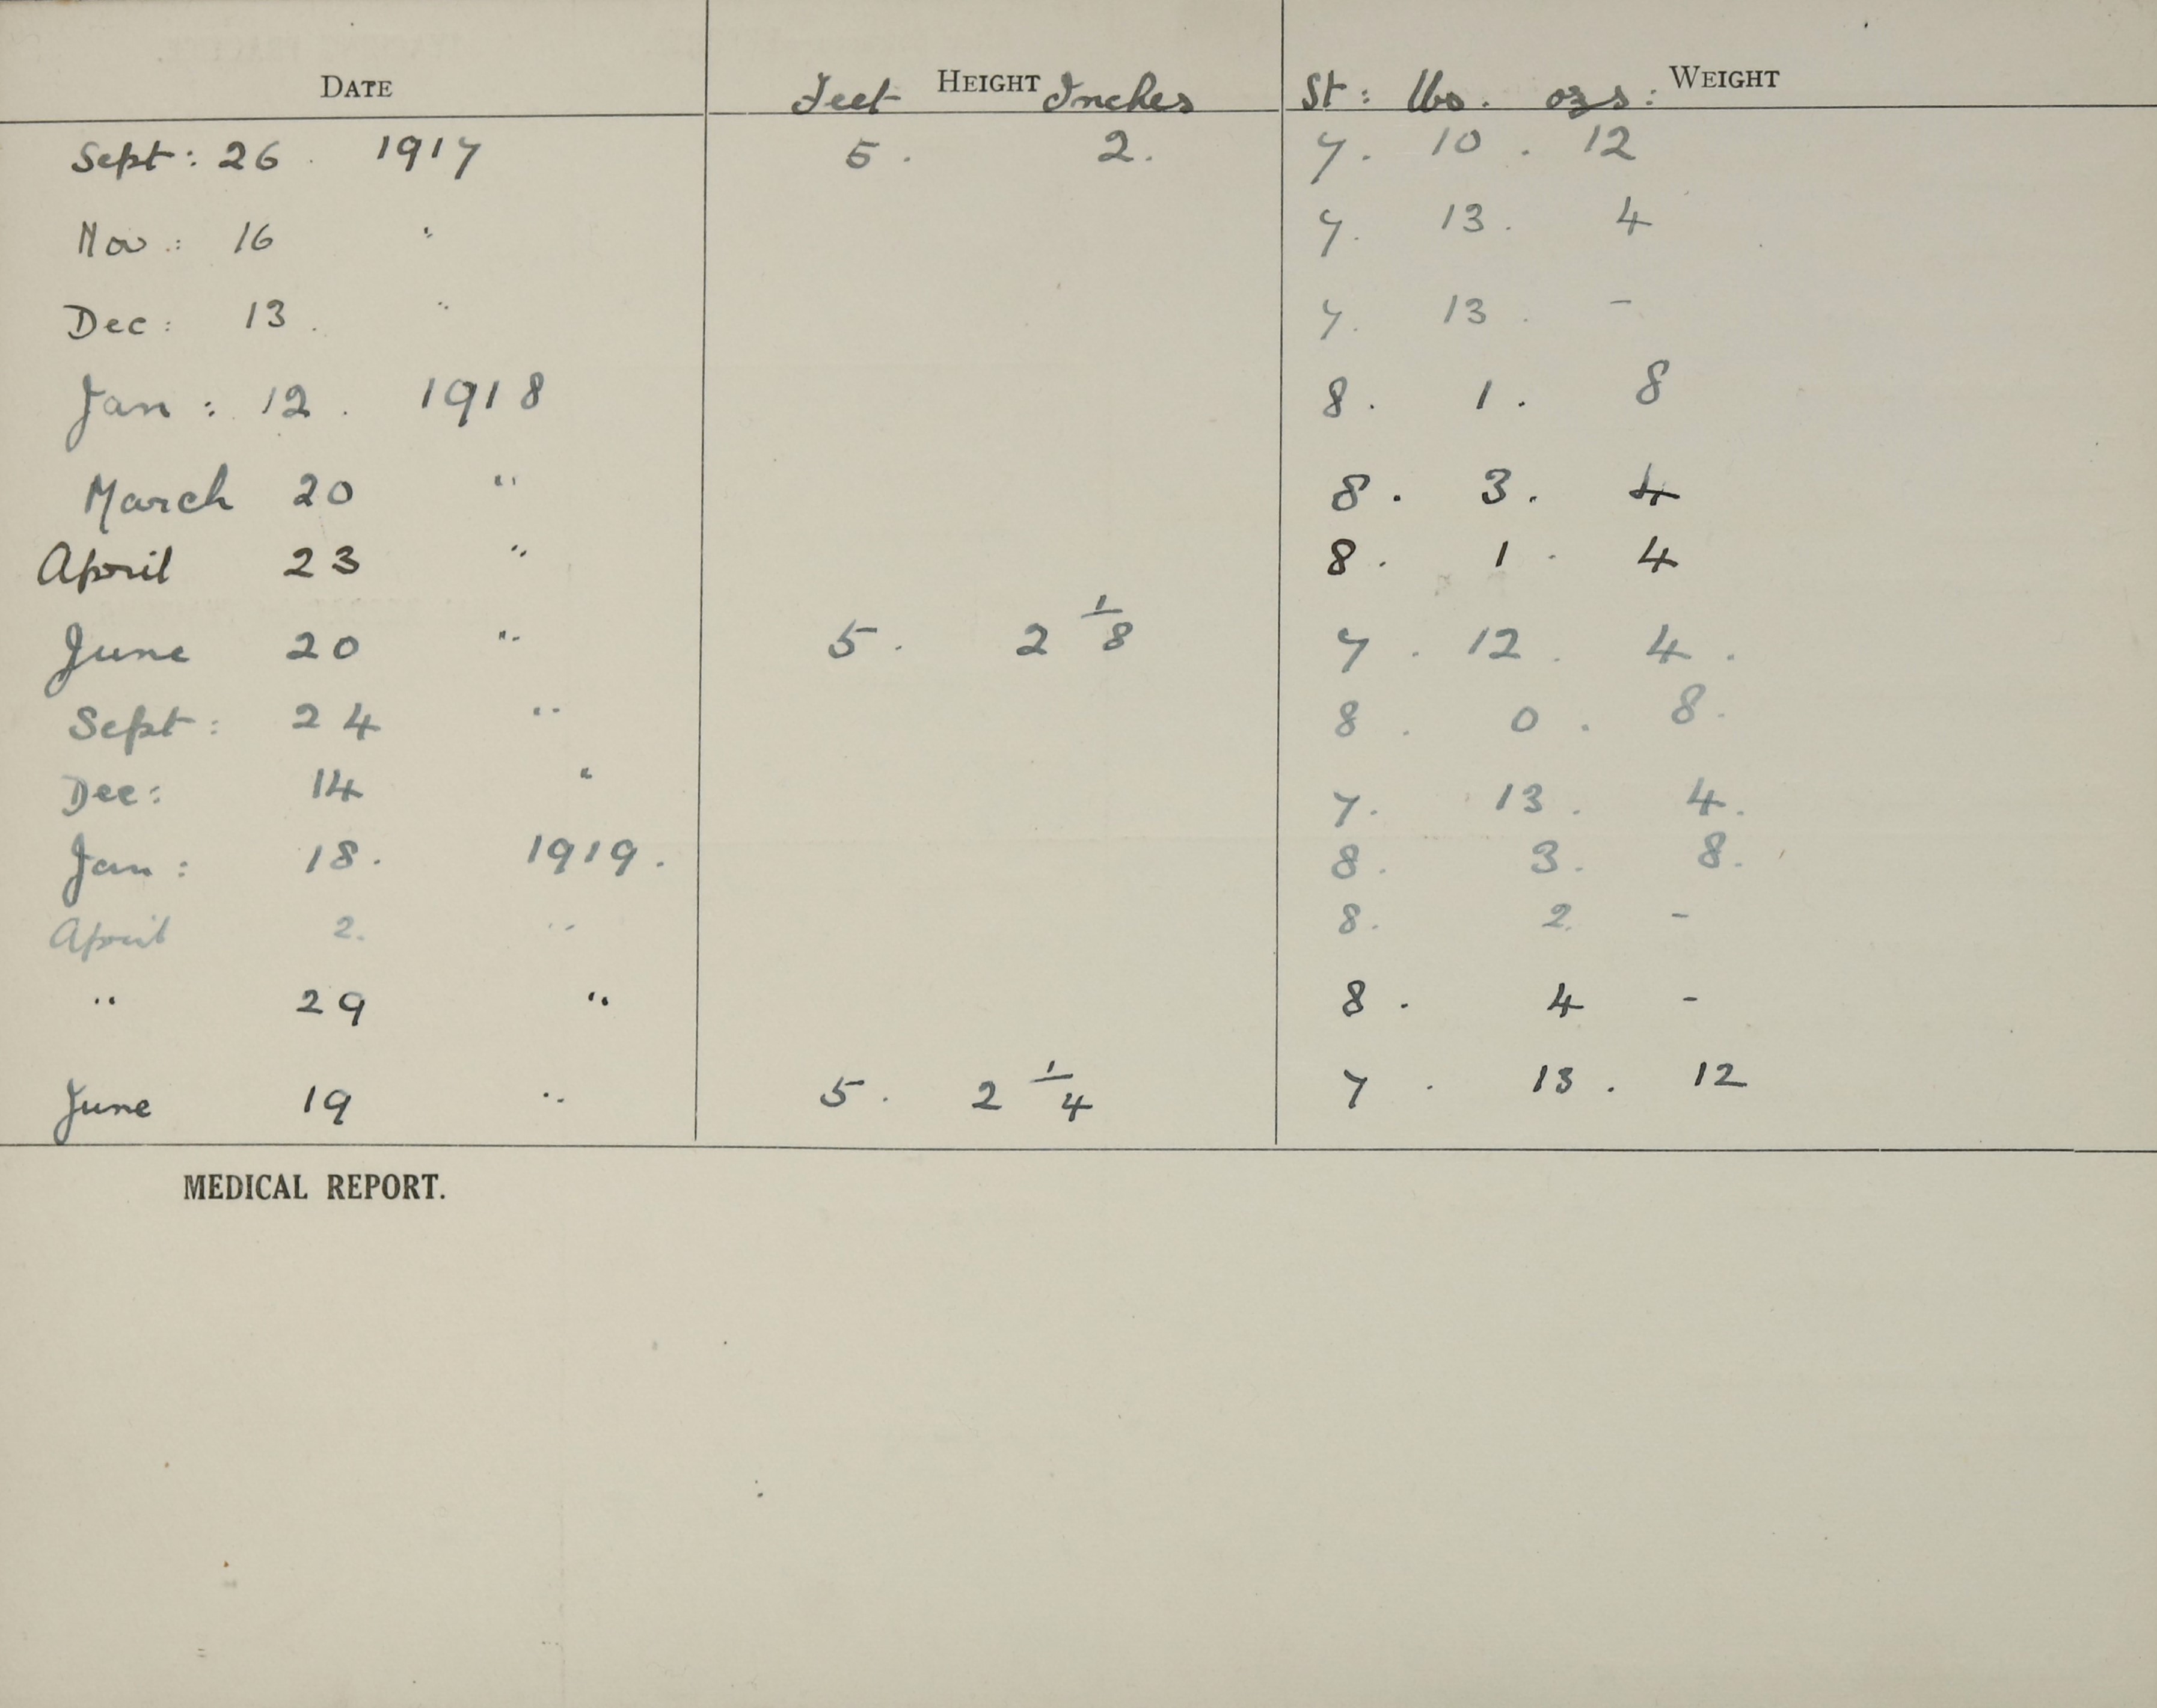 DATE Feet HEIGHT Inches St: lbs. ozs: WEIGHT
Sept: 26. 1917 5. 2. 7. 10. 12
Nov: 16 " 7. 13. 4
Dec: 13. " 7. 13. -
Jan: 12. 1918 8. 1. 8
March 20 " 8. 3. 4
April 23 " 8. 1. 4
June 20 " 5. 2 1/8 7. 12. 4.
Sept: 24 " 8. 0. 8.
Dec: 14 " 7. 13. 4.
Jan: 18. 1919. 8. 3. 8.
April 2. " 8. 2. -
" 29 " 8. 4 -
June 19 " 5. 2 1/4 7. 13. 12
MEDICAL REPORT.